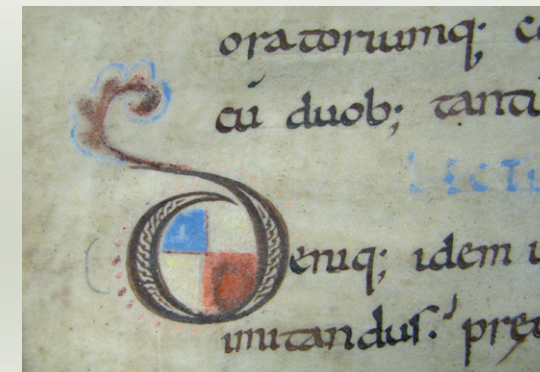 oratoriumq;
cū duob; tanti
LECTI
Deniq; idem
imitandus. pręt